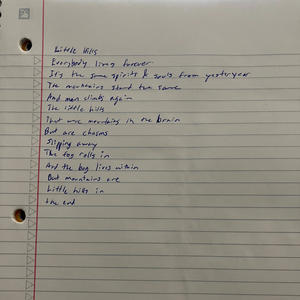 Little Hills
Everybody lives forever
It's the same spirits & souls from yesteryear
The mountains stand the same
And man climbs again
The little hills
That were mountains in the brain
But are chasms
Slipping away
The fog rolls in
And the boy lives within
But mountains are
Little hills in
the end